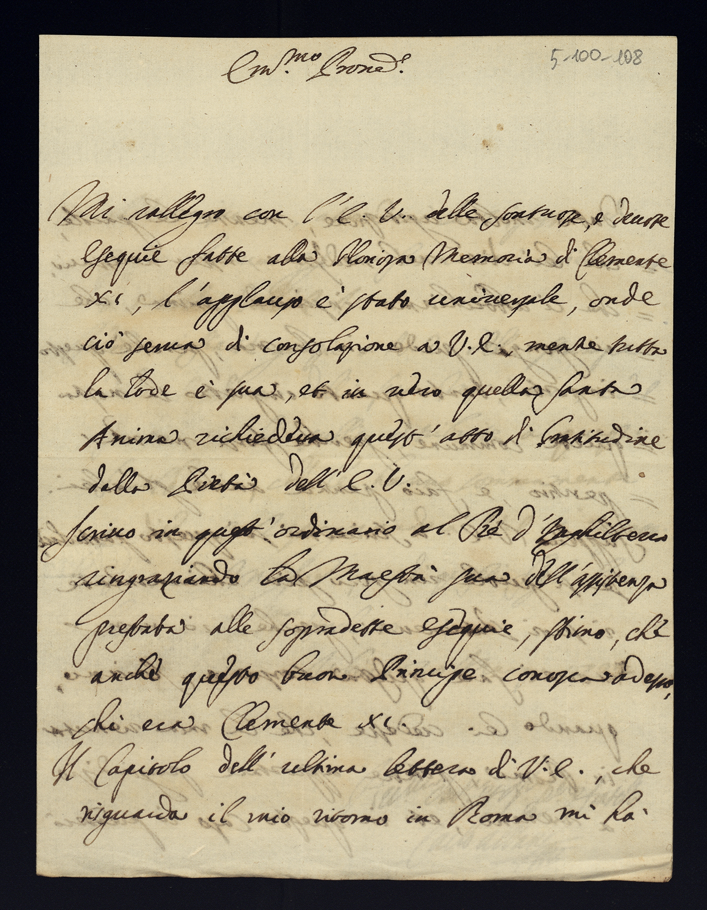 Em.mo Prone.
5-100-108
Mi rallegro con l'E. V. delle sontuose, e devote
Esequie fatte alla Gloriosa Memoria di Clemente
XI, l'applauso è stato universale, onde
ciò serva di consolazione a V. E., mentre tutta
la lode è sua, et in vero quella Santa
Anima richiedeva quest'atto di Gratitudine
dalla Pietà dell'E. V.
Scrivo in quest'ordinario al Rè d'Inghilterra
ringraziando la Maestà sua dell'assistenza
prestata alle sopradette esequie, stimo, che
anche questo buon Principe conosca adesso,
chi era Clemente XI.
Il Capitolo dell'ultima lettera di V. E., che
riguarda il mio ritorno in Roma mi hà